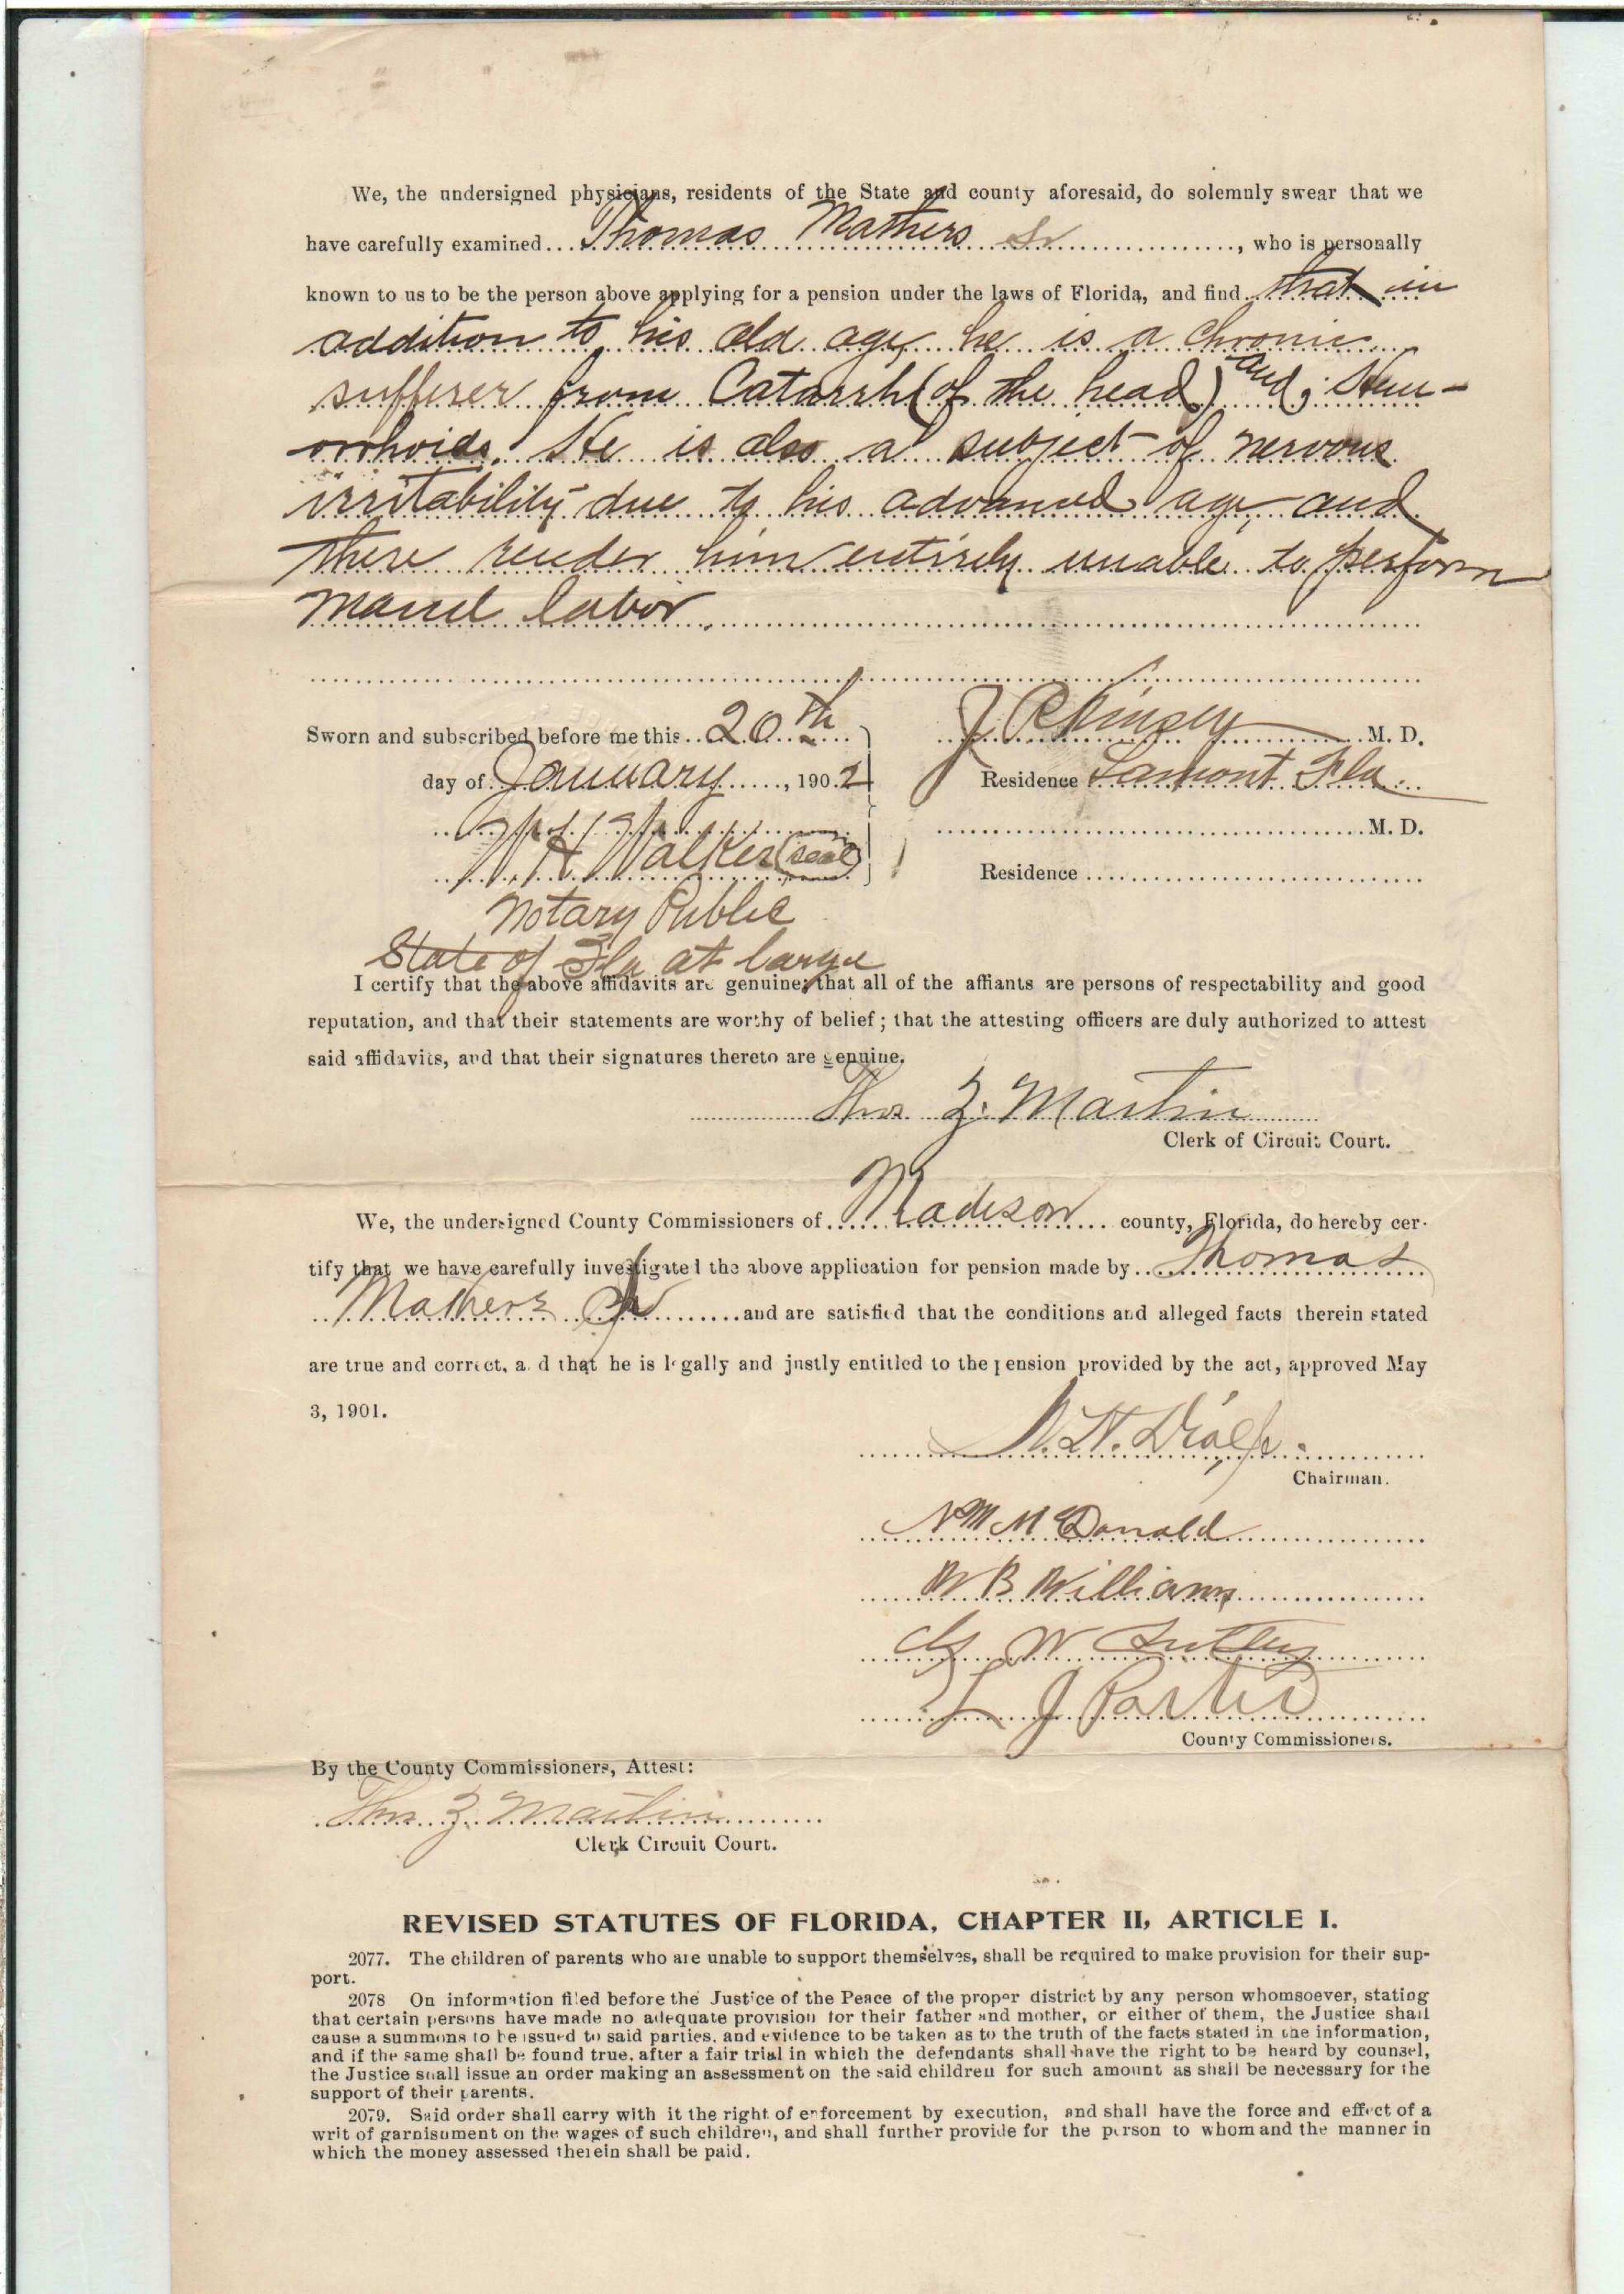 We, the undersigned physicians, residents of the State and county aforesaid, do solemnly swear that we
have carefully examined Thomas Mathers Sr, who is personally
known to us to be the person above applying for a pension under the laws of Florida, and find that in
addition to his old age he is a chronic
sufferer from Catarrh (of the head) and, Hem-
orrhoids. He is also a subject of nervous
irritability due to his advanced age, and
these render him entirely unable to perform
manul labor.
Sworn and subscribed before me this 20th
day of January, 1902
W H Walker (seal)
Notary Public
State of Fla at large
J. R. Kinsey M. D.
Residence Lamont Fla.
M. D.
Residence
I certify that the above affidavits are genuine; that all of the affiants are persons of respectability and good
reputation, and that their statements are worthy of belief; that the attesting officers are duly authorized to attest
said affidavits, and that their signatures thereto are genuine.
Thos Z. Martin
Clerk of Circuit Court.
We, the undersigned County Commissioners of Madison county, Florida, do hereby cer-
tify that we have carefully investigated the above application for pension made by Thomas
Mathers Sr and are satisfied that the conditions and alleged facts therein stated
are true and correct, and that he is legally and justly entitled to the pension provided by the act, approved May
3, 1901.
Chairman.
N M McDonald
W B Williams
W
L J
County Commissioners.
By the County Commissioners, Attest:
Thos Z. Martin
Clerk Circuit Court.
REVISED STATUTES OF FLORIDA, CHAPTER II, ARTICLE I.
2077. The children of parents who are unable to support themselves, shall be required to make provision for their sup-
port.
2078 On information filed before the Justice of the Peace of the proper district by any person whomsoever, stating
that certain persons have made no adequate provision for their father and mother, or either of them, the Justice shall
cause a summons to be issued to said parties, and evidence to be taken as to the truth of the facts stated in the information,
and if the same shall be found true, after a fair trial in which the defendants shall have the right to be heard by counsel,
the Justice shall issue an order making an assessment on the said children for such amount as shall be necessary for the
support of their parents.
2079. Said order shall carry with it the right of enforcement by execution, and shall have the force and effect of a
writ of garnishment on the wages of such children, and shall further provide for the person to whom and the manner in
which the money assessed therein shall be paid.